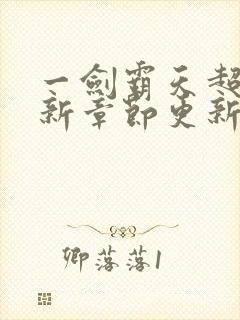 一劍霸天超
新章節更新
卿落落1